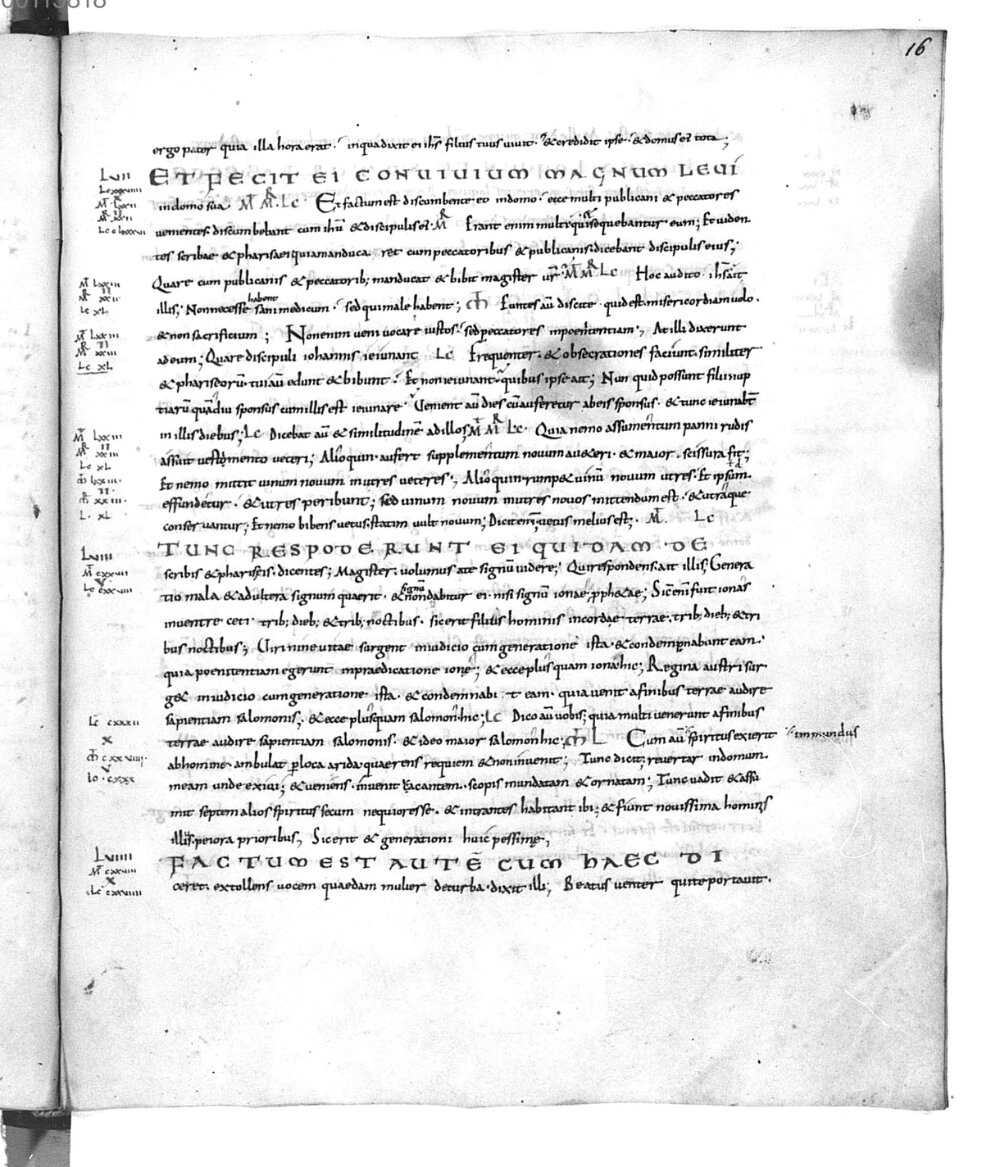 16
ergo pater quia illa hora erat. inqua dixit ei ihs filius tuus uiuit. & credidit ipse. & domus ei tota;
LUII ET FECIT EI CONUIUIUM MAGNUM LEUI
indomo sua M R LC Et factum est discumbente eo indomo. ecce multi publicani & peccatores
uenientes. discumbebant cum ihu & discipulis ei. M R Erant enim multi qui & sequebantur eum; Et uiden
tes scribae & pharisaei quia manducaret cum peccatoribus & publicanis. dicebant discipulis eius;
Quare cum publicanis & peccatorib; manducat & bibit magister ur. M M R LC Hoc audito ihs ait
illis; Non necesse habent sani medicum. sed qui male habent; M Euntes au discite quid est misericordiam uolo.
& non sacrificium; Non enim ueni uocare iustos. sed peccatores inpoenitentiam; At illi dixerunt
ad eum; Quare discipuli iohannis ieiunant LC frequenter. & obsecrationes faciunt. similiter
& phariseoru. tui au edunt & bibunt. Et non ieiunant. quibus ipse ait; Nun quid possunt filii nup
tiaru quadiu sponsus cum illis est ieiunare. Uenient au dies cu auferetur ab eis sponsus. & tunc ieiunabt
in illis diebus; LC Dicebat au & similitudine ad illos; M M R LC Quia nemo assumentum panni rudis
assuit uestimento ueteri; Alioquin. aufert supplementum nouum a ueteri. & maior. scissura fit;
Et nemo mittit uinum nouum inutres ueteres; Alioquin rumpet uinu nouum utres. Et ipsum
effundetur. & utres peribunt; sed uinum nouum inutres nouos mittendum est. & utraque
conseruantur; Et nemo bibens uetus. statim uult nouum; Dicit eni; uetus melius est; M LC
LUIII TUNC RESPODERUNT EI QUIDAM DE
scribis & phariseis. dicentes; Magister. uolumus a te signu uidere; Qui respondens. ait illis; Genera
tio mala & adultera signum quaerit. & signu non dabitur ei. nisi signu ionae. pph&ae; Sic eni fuit ionas
inuentre ceti. trib; dieb; & trib; noctibus. sic erit filius hominis incordae terrae. trib; dieb; & tri
bus noctibus; Uiri nineuitae surgent iniudicio cum generatione ista. & condempnabunt eam.
quia poenitentiam egerunt inpraedicatione ione; & ecce plus quam iona hic; Regina austri sur
get iniudicio cum generatione ista. & condemnabit eam. quia uenit afinibus terrae audire
sapientiam salomonis; & ecce plus quam salomon hic; LC Dico au uobis; quia multi uenerunt afinibus
terrae audire sapientiam salomonis. & ideo maior salomon hic; M L Cum au spiritus exierit immundus
abhomine. ambulat ploca arida quaerens requiem & non inuenit; Tunc dicit; reuertar indomum
meam unde exiui; & ueniens. inuenit uacantem. scopis mundatam & ornatam; Tunc uadit & assu
mit septem alios spiritus secum nequiores se. & intrantes habitant ibi; & fiunt nouissima hominis
illis. peiora prioribus; Sic erit & generationi huic pessime;
LUIIII FACTUM EST AUTE CUM HAEC DI
ceret. extollens uocem quaedam mulier deturba. dixit illi; Beatus uenter qui te portauit.